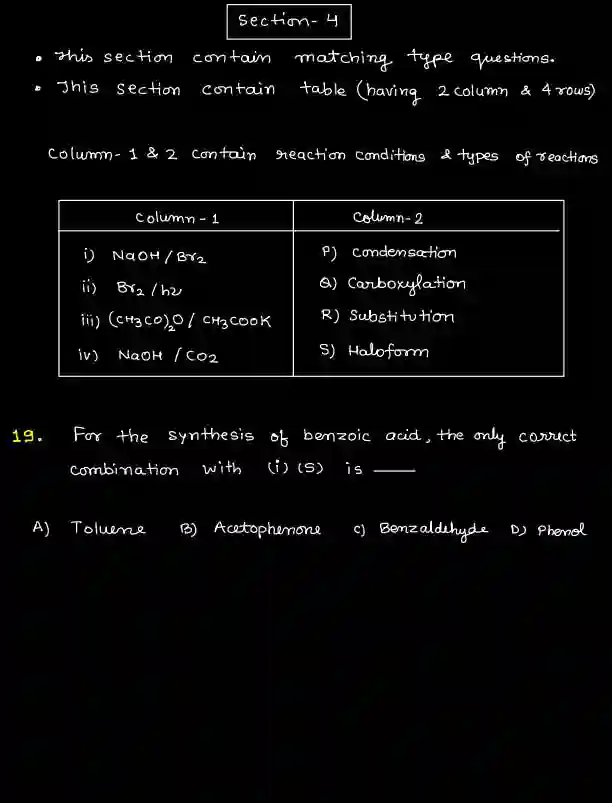 Section-4
• This section contain matching type questions.
• This section contain table (having 2 column & 4 rows)
Column-1 & 2 contain reaction conditions & types of reactions
Column-1 Column-2
i) NaOH/Br₂ P) Condensation
ii) Br₂/hν Q) Carboxylation
iii) (CH₃CO)₂O/CH₃COOK R) Substitution
iv) NaOH/CO₂ S) Haloform
19. For the synthesis of benzoic acid, the only correct
combination with (i) (S) is ____
A) Toluene B) Acetophenone C) Benzaldehyde D) Phenol